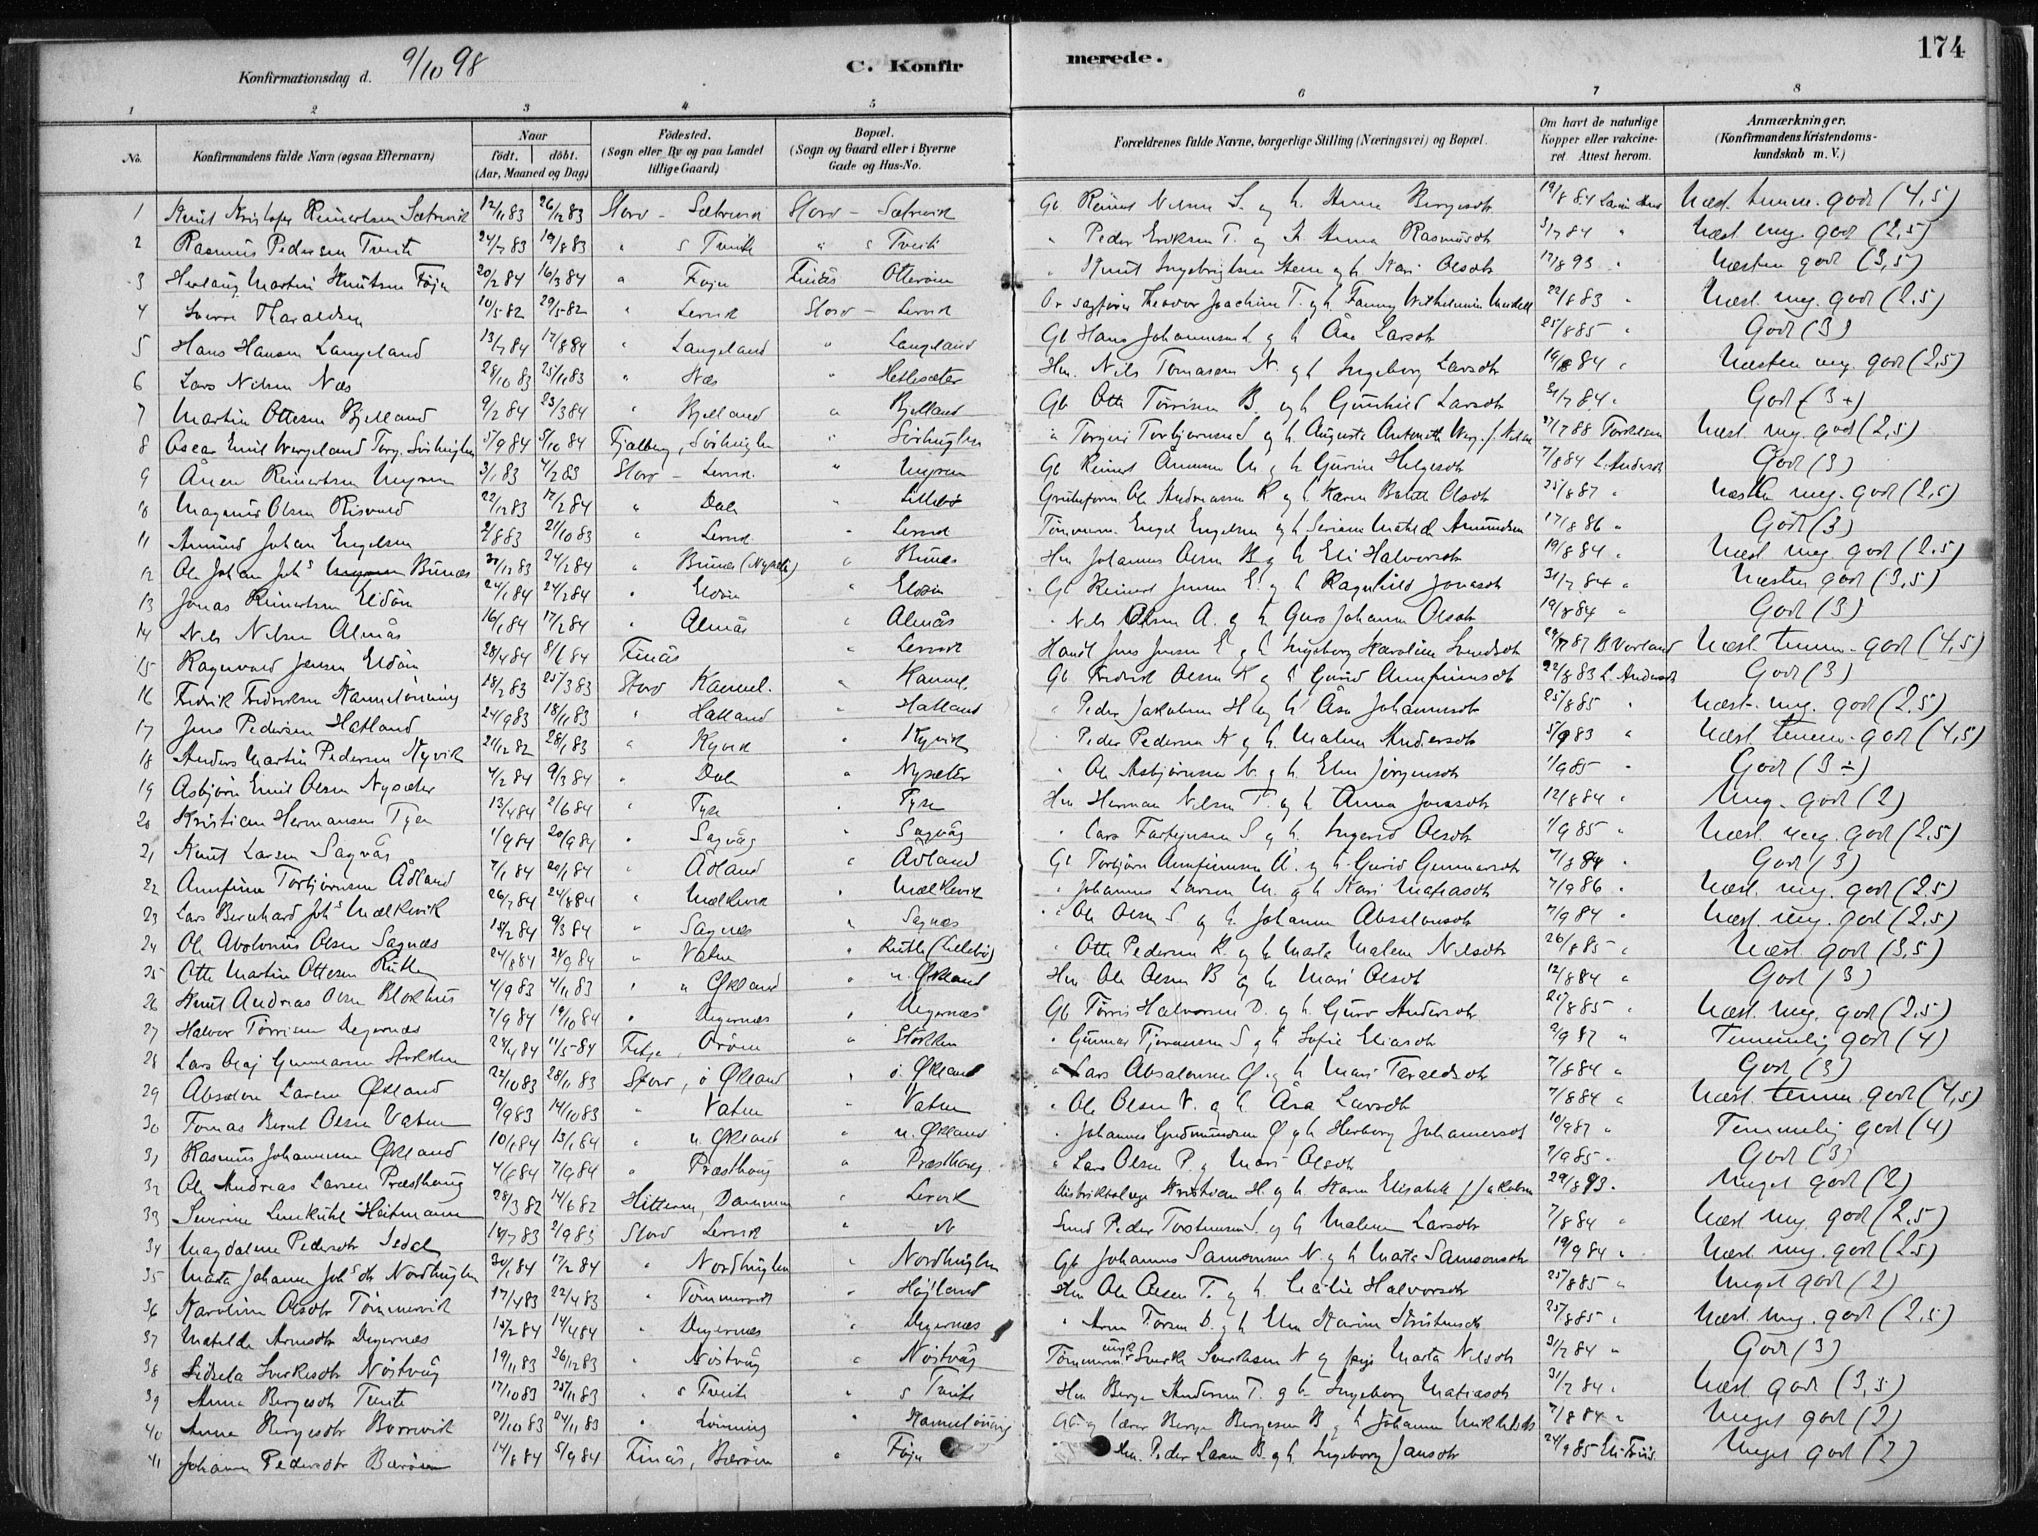 Konfirmationsdag d. 9/10 98
C. Konfirmerede.
174
1 2 3 4 5 6 7 8
No. | Konfirmandens fulde Navn (ogsaa Efternavn) | Naar födt. döbt. (Aar, Maaned og Dag) | Födested. (Sogn eller By og paa Landet tillige Gaard) | Bopæl. (Sogn og Gaard eller i Byerne Gade og Hus-No. | Forældrenes fulde Navne, borgerlige Stilling (Næringsvei) og Bopæl. | Om havt de naturlige Kopper eller vakcineret. Attest herom. | Anmærkninger. (Konfirmandens Kristendomskundskab m. V.)
1 Knut Kristofer Reinertsen Sætrevik 12/11 83 26/12 83 Stord - Sætrevik Stord - Sætrevik Gb Reinert Nilsen S. og h. Anna Bergesdtr 19/8 84 Næst temm. god (4,5)
2 Rasmus Pedersen Tveite 24/7 83 19/8 83 " s Tveite " s Tveite " Peder Eriksen T. og h. Anna Rasmusdtr 3/7 84 " Næst meg. god (2,5)
3 Martin Knutsen Föjn 20/2 84 16/3 84 " Föjn Finås Otteröen " Knut Ingebrigtsen og h Kari Olsdtr 17/8 93 " Næsten god (3,5)
4 Sverre Tharaldsen 10/5 82 29/5 82 " Lervik Stord - Lervik Or sagförer Theodor Joachim T. og h Fanny Wilhelmine 22/8 83 " Næst. meg. god (2,5)
5 Hans Hansen Langeland 13/7 84 17/8 84 " Langeland " Langeland Gb Hans Johannesen L og h Åsa Larsdtr 25/8 85 " God (3)
6 Lars Nilsen Næs 28/10 83 25/11 83 " Næs " Hetlesæter Hm. Nils Tomasen N. og h Ingeborg Larsdtr 19/8 84 " Næsten meg. god (2,5)
7 Martin Ottesen Bjelland 9/2 84 23/3 84 " Bjelland " Bjelland Gb Otte Törrisen B. og h Gunhild Larsdtr 31/7 84 " God (3+)
8 Oscar Emil Wergeland Torg. Sörhuglen 5/9 84 5/10 84 Fjelberg, Sörhuglen " Sörhuglen " Torgeir Torbjörnsen S og h. Augusta 27/7 88 Torkelsen Næst meg. god (2,5)
9 Ånen Reinertsen Myren 3/1 83 4/2 83 Stord - Lervik " Myren Gb Reinert Ånensen M og h Gurine Helgesdtr 7/8 84 L. Andersdt God (3)
10 Magnus Olsen Risvold 22/12 83 17/2 84 " Dale " Lillebö Grubeform. Ole Andreassen R og h Karen Olsdtr 25/8 87 " Næsten meg. god (2,5)
11 Amund Johan Engelsen 2/8 83 21/10 83 " Lervik " Lervik Tömmerm. Engel Engelsen og h Serine Matilde Amundsen 17/8 86 " God (3)
12 Ole Johan Johs Bunes 31/12 83 24/2 84 " Bunes (Nysæter) " Bunes Hm Johannes Olsen B og h Eli Halvorsdtr 19/8 84 " Næst meg god (2,5)
13 Jonas Reinertsen Eldöen 24/1 84 24/2 84 " Eldöen " Eldöen Gb Reinert Jensen E. og h Ragnhild Jonasdtr 31/7 84 " Næsten god (3,5)
14 Nils Nilsen Almås 16/1 84 17/2 84 " Almås " Almås " Nils Olsen A. og h. Guro Johanna Olsdtr 19/8 84 " God (3)
15 Ragnvald Jensen Eldöen 28/4 84 8/6 84 Finås " Lervik Handl Jens Jensen E og h Ingeborg Karoline Knudsdtr Vorland Næst temm. god (4,5)
16 Fredrik Fredriksen Kammelönning 18/2 83 25/3 83 Stord Kammel. " Kammel. Gb Fredrik Olsen K og h Gurid Annfinnsdtr 22/8 83 L. Andersdt God (3)
17 Jens Pedersen Hatland 24/9 83 18/11 83 " Hatland " Hatland " Peder Jakobsen H og h Åsa Johannesdtr 25/8 85 " Næst. meg. god (2,5)
18 Anders Martin Pedersen Kyvik 21/12 82 28/1 83 " Kyvik " Kyvik " Peder Pedersen K og h. Malena Andersdtr 5/9 83 " Næst temm. god (4,5)
19 Asbjörn Emil Olsen Nysæter 4/2 84 9/3 84 " Dale " Nysæter " Ole Asbjörnsen N. og h. Elen Jörgensdtr 1/9 85 " God (3÷)
20 Kristian Hermansen Tyse 13/4 84 2/6 84 " Tyse " Tyse Hm Herman Nilsen T. og h Anna Jonsdtr 12/8 84 " Meg. god (2)
21 Knut Larsen Sagvåg 1/9 84 20/9 84 " Sagvåg " Sagvåg " Lars Farteinsen S og h. Ingerid Olsdtr 1/9 85 " Næst. meg. god (2,5)
22 Annfinn Torbjörnsen Ådland 7/1 84 20/1 84 " Ådland " Ådland Gb Torbjörn Annfinnsen Å. og h Gurid Gunnarsdtr 7/8 84 " God (3)
23 Lars Bernhard Johs Mælkevik 26/7 84 24/8 84 " Mælkevik " Mælkevik " Johannes Larsen M. og h Kari Matiasdtr 7/9 86 " Næst meg. god (2,5)
24 Ole Olsen Sagnæs 15/2 84 9/3 84 " Sagnæs " Sagnæs " Ole Olsen S og h. Johanna Absalonsdtr 7/9 84 " Næst meg. god (2,5)
25 Otte Martin Ottesen Rutle 24/8 84 21/9 84 " Vatne " Rutle (Lillebö) " Otte Pedersen R. og h Marta Malena Nilsdtr 26/8 85 " Næst. god (3,5)
26 Knut Andreas Olsen Blokhus 4/9 83 4/11 83 " n Økland " n. Økland Hm. Ole Olsen B og h Mari Olsdtr 12/8 84 " God (3)
27 Halvor Törrisen Degernæs 7/9 84 19/10 84 " Degernæs " Degernæs Gb Törris Halvorsen D. og h Guro Andersdtr 25/8 85 " Næst. meg. god (2,5)
28 Lars Olaj Gunnarsen Stokken 23/4 84 11/5 84 Fitje, Oröen " Stokken " Gunnar Tjeransen S og h Sofie Eliasdtr 2/9 87 " Temmelig god (4)
29 Absalon Larsen Økland 22/10 83 28/11 83 Stord, ö Økland " ö Økland " Lars Absalonsen Ø. og h Mari Taraldsdtr 7/8 84 " God (3)
30 Tomas Bernt Olsen Vatne 9/9 83 14/10 83 " Vatne " Vatne " Ole Olsen V. og h Åsa Larsdtr 7/8 84 " Næst. temm. god (4,5)
31 Rasmus Johannesen Økland 10/1 84 13/1 84 " n. Økland " n. Økland " Johannes Gudmundsen Ø og h Herborg Johannesdt 10/9 87 " Temmelig god (4)
32 Ole Andreas Larsen Præsthaug 4/8 84 7/9 84 " Præsthaug " Præsthaug " Lars Olsen P. og Mari Olsdtr 2/9 85 " God (3)
33 Severine Lemkuhl Heitmann 28/3 82 14/6 82 Hitteren, " Lervik Distriktslæge Kristian H. og h Karen Elisabeth f Jakobsen 29/8 93 " Meget god (2)
34 Magdalene Pedersdtr 18/7 83 2/9 83 Stord Lervik " " Smed Peder Tostensen S. og h Malene Larsdtr 7/8 84 " Næst. meg. god (2,5)
35 Marta Johanna Johs dtr Nordhuglen 20/1 84 17/2 84 " Nordhuglen " Nordhuglen Gb Johannes Samsonsen N. og h Marta Samsonsdtr 19/9 84 " Næst. meg. god (2,5)
36 Karoline Olsdtr Tömmervik 17/4 83 22/4 83 " Tömmervik " Højland Hm Ole Olsen T. og h. Cecilie Halvorsdtr 25/8 85 " Meget god (2)
37 Matilde Arnesdtr Degernæs 15/2 84 14/4 84 " Degernæs " Degernæs " Arne Larsen D. og h Elen Karine Kristensdt 25/8 85 " Næst meg. god (2,5)
38 Sidsela Sverkesdtr Nöstvåg 19/11 83 26/12 83 " Nöstvåg " Nöstvåg Tömmerm Sverke Sverkesen N og pige Marta Nelsdtr 31/7 84 " God (3)
39 Anna Bergesdt Tveite 17/10 83 25/11 83 " s Tveite " s Tveite Hm Berge Andersen T. og h. Ingeborg Matiasdtr 31/7 84 " Næst god (3,5)
40 Anna Bergesdtr Borrevik 21/10 83 24/11 83 " Lönning " Kammelönning Gb og lærer Berge Bergesen B og h Johanna Mikkelsdt 7/8 84 " Meget god (2)
41 Johanna Pedersdtr Bæröen 14/8 84 5/9 84 Finås, Bæröen " Föjn Hm. Peder Larsen B. og h Ingeborg Jansdtr 24/9 85 Meget god (2)